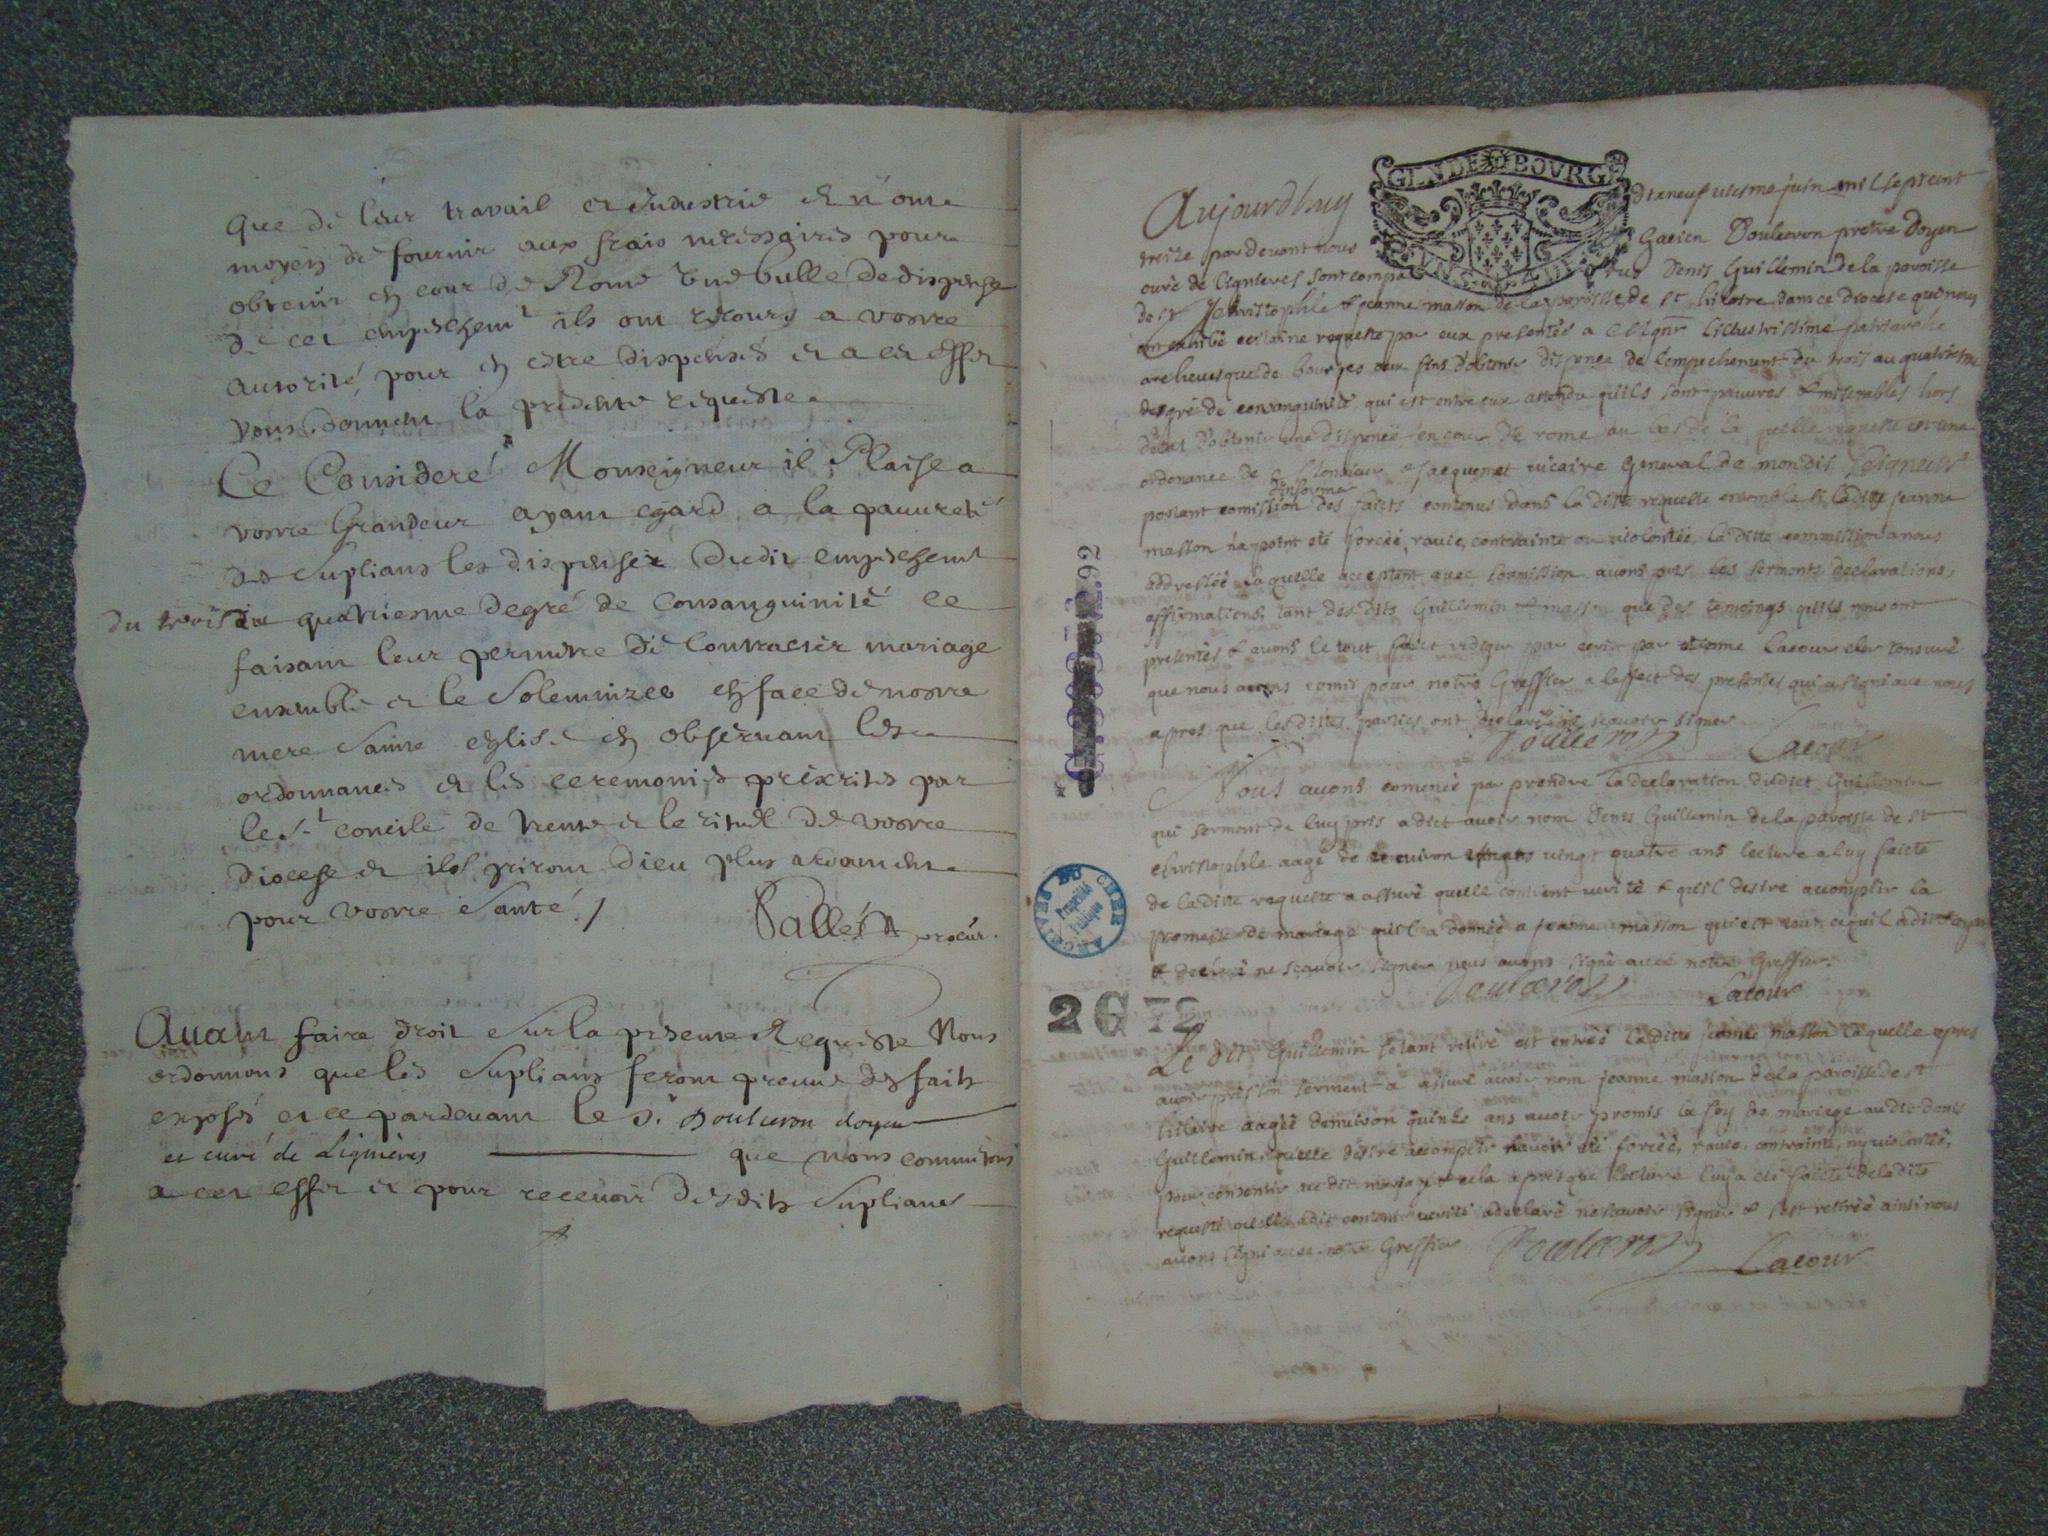 que de leur travail et industrie et n'ont
moyen de fournir aux frais necessaires pour
obtenir en cour de Rome une bulle de dispense
de cet empeschemt ils ont recours a vostre
autorité pour en estre dispensés et a cet effet
vous donnent la presente requeste
Ce Consideré Monseigneur il Plaise a
vostre Grandeur ayant egard a la pauureté
des Suplians les dispenser dudit empeschemt
du trois au quatriesme degré de Consanguinité ce
faisant leur permettre de Contracter mariage
ensemble et le Solemnizer en face de nostre
mere Sainte eglise en observant les
ordonnances et les ceremonies prescrites par
le St concile de trente et le rituel de vostre
diocese et ils priront Dieu plus ardament
pour vostre Santé /
Pallet procur.
Auant faire droit Sur la presente Requeste Nous
ordonnons que les Suplians feront preuue des faits
exposés et ce pardeuant le Sr. Douleron doyen
et curé de Lignieres que nous commettons
a cet effet et pour receuoir desdits Suplians
GEN DE BOVRG
Aujourdhuy dixneufuiesme juin mil sept cent
treize pardevant nous Gatien Douleron pretre Doyen
curé de Lignieres sont compa Denis Guillemin de la paroisse
de St Christophle & jeanne masson de la paroisse de St hilaire dans ce Diocese qui nous
ont exhibé certaine requeste par eux presentée a Monsgnr lillustrissime patriarche
archeuesque de bourges aux fins d'obtenir dispence de l'empechement du trois au quatriesme
degré de consanguinité qui est entre eux attendu qu'ils sont pauures & miserables hors
d'etat d'obtenir une dispence en cour de rome au bas de la quelle requeste est une
ordonance de Monsieur Jacquemet vicaire General de mondit Seigneur
d'informer
portant comission des faicts contenus dans la ditte requeste ensemble si laditte jeanne
masson n'a point eté forcée, rauie, contrainte ou violentée, laditte commission a nous
addressée la quelle acceptant auec soumission auons pris les serments declarations,
affirmations, tant desdits Guillemin & masson que des temoings qu'ils nous ont
presentés & auons le tout faict rediger par ecrit par etienne Lacour clerc tonsuré
que nous auons comis pour notre Greffier a leffect des presentes qui a signé auec nous
apres que lesdittes parties ont declaré ne sçauoir signer
Douleron Lacour
Nous auons comencé par prendre la declaration dudict Guillemin
qui serment de luy pris a dict avoir nom Denis Guillemin de la paroisse de St
christophle aagé de enuiron vingt quatre ans lecture a luy faicte
de laditte requette a assuré quelle contient uerité & qu'il desire accomplir la
promesse de mariage qu'il a donnée a jeanne masson qui est tout ce qu'il a dit
& declaré ne sçauoir signer nous auons signé auec notre Greffier.
Douleron Lacour
Le dit Guillemin s'etant retiré est entrée laditte jeanne masson laquelle apres
auoir pris son serment a assuré auoir nom jeanne masson de la paroisse de St
hilaire aagée denuiron quinze ans auoir promis la foy de mariage audit denis
Guillemin, qu'elle desire accomplir n'auoir eté forcée, rauie, contrainte, ny uiolentée,
pour consentir audit mariage & cela apres que lecture luy a eté faicte de ladite
requeste qu'elle a dit contenir uerité a declaré ne sçauoir signer & s'est retirée ainsi nous
auons signé auec notre Greffier Douleron Lacour
ARCHIVES DU CHER
Propriété
Publique
2 G 72